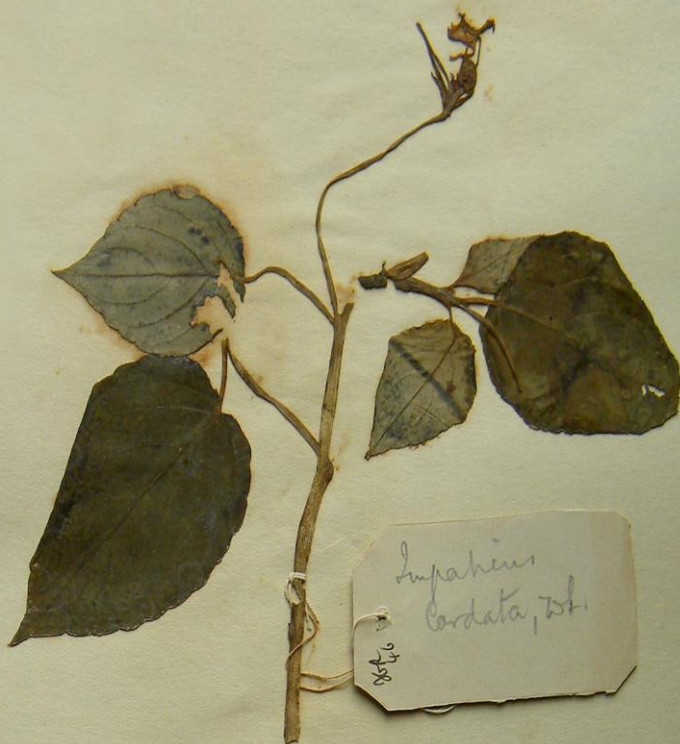 Impatiens
Cordata, Wt.
46